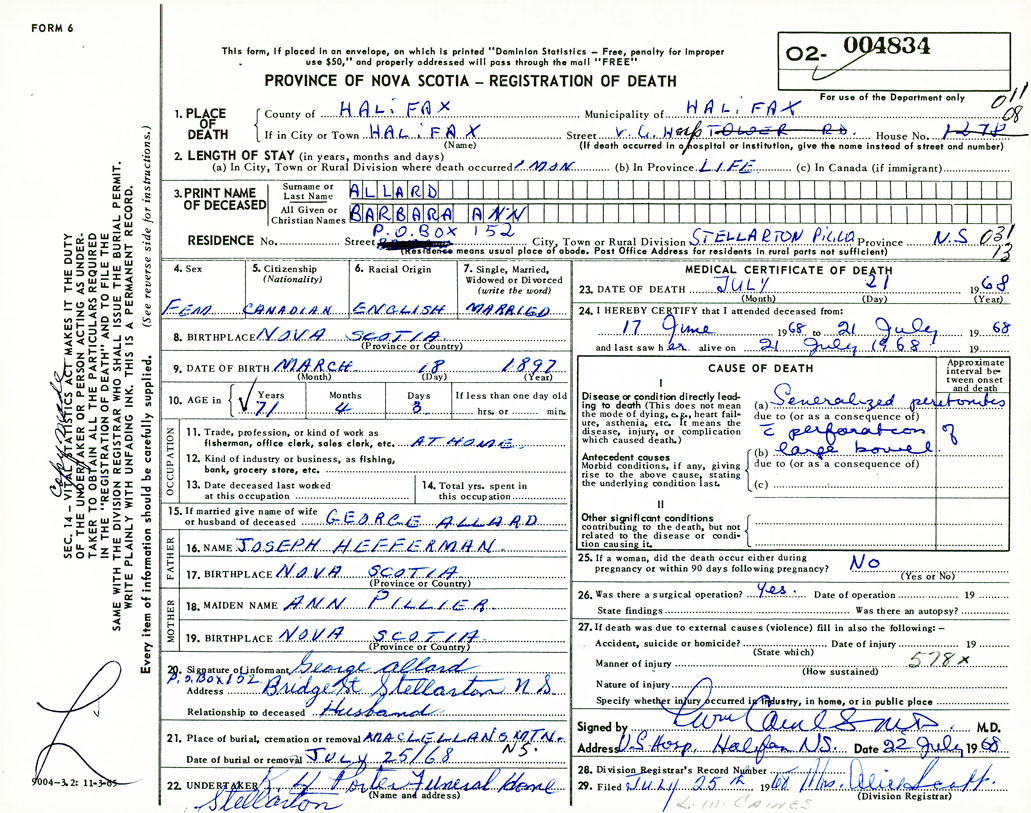 FORM 6
This form, if placed in an envelope, on which is printed "Dominion Statistics – Free, penalty for improper
use $50," and properly addressed will pass through the mail "FREE"
PROVINCE OF NOVA SCOTIA – REGISTRATION OF DEATH
O2- 004834
For use of the Department only
011
08
1. PLACE OF DEATH
County of HALIFAX Municipality of HALIFAX
If in City or Town HALIFAX Street V. G. Hosp TOWER RD. House No. 1278
(Name) (If death occurred in a hospital or institution, give the name instead of street and number)
2. LENGTH OF STAY (in years, months and days)
(a) In City, Town or Rural Division where death occurred 1 MON (b) In Province LIFE (c) In Canada (if immigrant)
3. PRINT NAME OF DECEASED
Surname or Last Name ALLARD
All Given or Christian Names BARBARA ANN
P.O. BOX 152
RESIDENCE No. Street City, Town or Rural Division STELLARTON Pictou Province N.S 031
13
(Residence means usual place of abode. Post Office Address for residents in rural parts not sufficient)
4. Sex
FEM
5. Citizenship
(Nationality)
CANADIAN
6. Racial Origin
ENGLISH
7. Single, Married,
Widowed or Divorced
(write the word)
MARRIED
8. BIRTHPLACE NOVA SCOTIA
(Province or Country)
9. DATE OF BIRTH MARCH 18 1897
(Month) (Day) (Year)
10. AGE in Years Months Days If less than one day old
71 4 3 hrs. or min.
OCCUPATION
11. Trade, profession, or kind of work as
fisherman, office clerk, sales clerk, etc. AT HOME
12. Kind of industry or business, as fishing,
bank, grocery store, etc.
13. Date deceased last worked
at this occupation
14. Total yrs. spent in
this occupation
15. If married give name of wife
or husband of deceased GEORGE ALLARD
FATHER
16. NAME JOSEPH HEFFERMAN
17. BIRTHPLACE NOVA SCOTIA
(Province or Country)
MOTHER
18. MAIDEN NAME ANN PILLIER
19. BIRTHPLACE NOVA SCOTIA
(Province or Country)
20. Signature of informant George Allard
P.O. Box 152
Address Bridge St Stellarton N.S.
Relationship to deceased Husband
21. Place of burial, cremation or removal MACLELLANS MTN.
N.S.
Date of burial or removal JULY 25/68
22. UNDERTAKER Porter Funeral Home
(Name and address)
Stellarton
MEDICAL CERTIFICATE OF DEATH
23. DATE OF DEATH JULY 21 1968
(Month) (Day) (Year)
24. I HEREBY CERTIFY that I attended deceased from:
17 June 1968 to 21 July 1968
and last saw her alive on 21 July 1968 19
CAUSE OF DEATH
Approximate
interval be-
tween onset
and death
I
Disease or condition directly lead-
ing to death (This does not mean
the mode of dying, e.g., heart fail-
ure, asthenia, etc. It means the
disease, injury, or complication
which caused death.)
(a) Generalized peritonitis
due to (or as a consequence of)
c̄ perforation of
Antecedent causes
Morbid conditions, if any, giving
rise to the above cause, stating
the underlying condition last.
(b) large bowel
due to (or as a consequence of)
(c)
II
Other significant conditions
contributing to the death, but not
related to the disease or condi-
tion causing it.
25. If a woman, did the death occur either during
pregnancy or within 90 days following pregnancy? NO
(Yes or No)
26. Was there a surgical operation? Yes. Date of operation 19
State findings Was there an autopsy?
27. If death was due to external causes (violence) fill in also the following: –
Accident, suicide or homicide? Date of injury 19
(State which)
Manner of injury 578x
(How sustained)
Nature of injury
Specify whether injury occurred in industry, in home, or in public place
Signed by M.D.
Address V.G. Hosp. Halifax N.S. Date 22 July 1968
28. Division Registrar's Record Number
29. Filed July 25th 1968 Mrs. Alice Scott
(Division Registrar)
L. M. CAINES
SEC. 14 – VITAL STATISTICS ACT MAKES IT THE DUTY
OF THE UNDERTAKER OR PERSON ACTING AS UNDER-
TAKER TO OBTAIN ALL THE PARTICULARS REQUIRED
IN THE "REGISTRATION OF DEATH" AND TO FILE THE
SAME WITH THE DIVISION REGISTRAR WHO SHALL ISSUE THE BURIAL PERMIT.
WRITE PLAINLY WITH UNFADING INK. THIS IS A PERMANENT RECORD.
Every item of information should be carefully supplied. (See reverse side for instructions.)
9004-3.2: 11-3-65